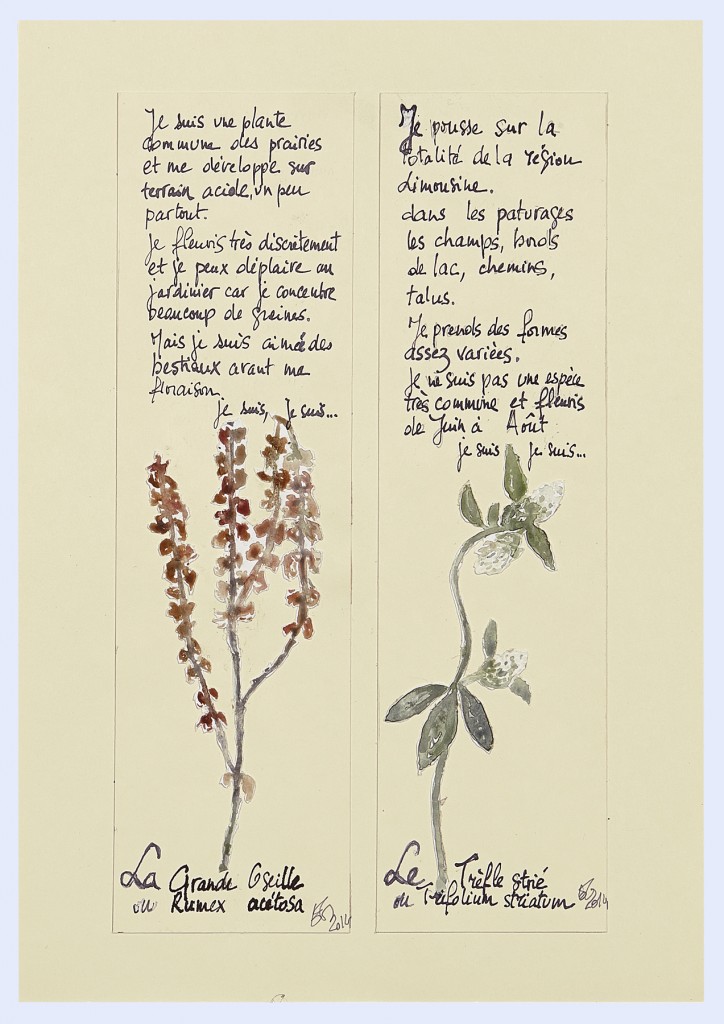 Je suis une plante
commune des prairies
et me développe sur
terrain acide, un peu
partout.
Je fleuris très discrètement
et je peux déplaire au
jardinier car je concentre
beaucoup de graines.
Mais je suis aimée des
bestiaux avant ma
floraison.
je suis, je suis...
La Grande Oseille
ou Rumex acétosa
2014
Je pousse sur la
totalité de la région
Limousine.
dans les paturages
les champs, bords
de lac, chemins,
talus.
Je prends des formes
assez variées.
Je ne suis pas une espèce
très commune et fleuris
de Juin à Août
je suis je suis...
Le Trèfle strié
ou Trifolium striatum
2014